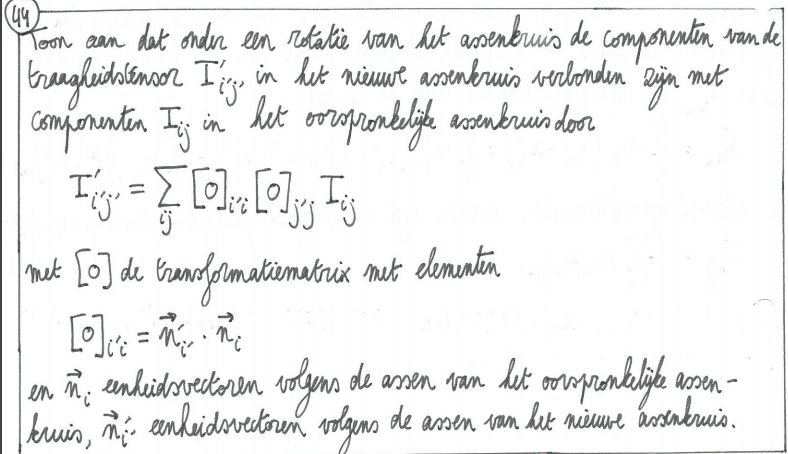 44
Toon aan dat onder een rotatie van het assenkruis de componenten van de
traagheidstensor I'ᵢ'ⱼ' in het nieuwe assenkruis verbonden zijn met
componenten Iᵢⱼ in het oorspronkelijke assenkruis door
I'ᵢ'ⱼ' = ∑ᵢⱼ [O]ᵢ'ᵢ [O]ⱼ'ⱼ Iᵢⱼ
met [O] de transformatiematrix met elementen
[O]ᵢ'ᵢ = n⃗'ᵢ' · n⃗ᵢ
en n⃗ᵢ eenheidsvectoren volgens de assen van het oorspronkelijke assen-
kruis, n⃗'ᵢ' eenheidsvectoren volgens de assen van het nieuwe assenkruis.